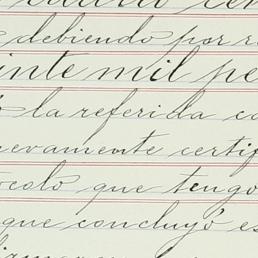 debiendo por
inte mil pe
la referida co
evamente certif
ocolo que tengo
que concluyó es